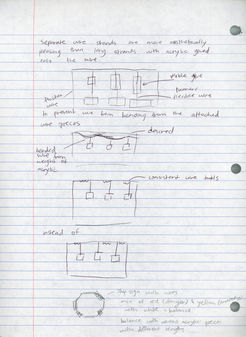 Separate wire strands are more aesthetically
pleasing than long strands with acrylic glued
onto the wire.
visible glue
thicker
wire
flexible wire
To prevent wire from bending from the attached
wire pieces
desired
bended
wire from
weight of
acrylic
consistent wire
instead of
stop sign with wires
mix of red (danger) & yellow
with white = balance
balance with various acrylic pieces
with different lengths